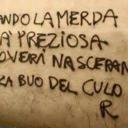 ANDO LA MERDA
A' PREZIOSA
OVERI NASCERAN
ZA BUO DEL CULO
R